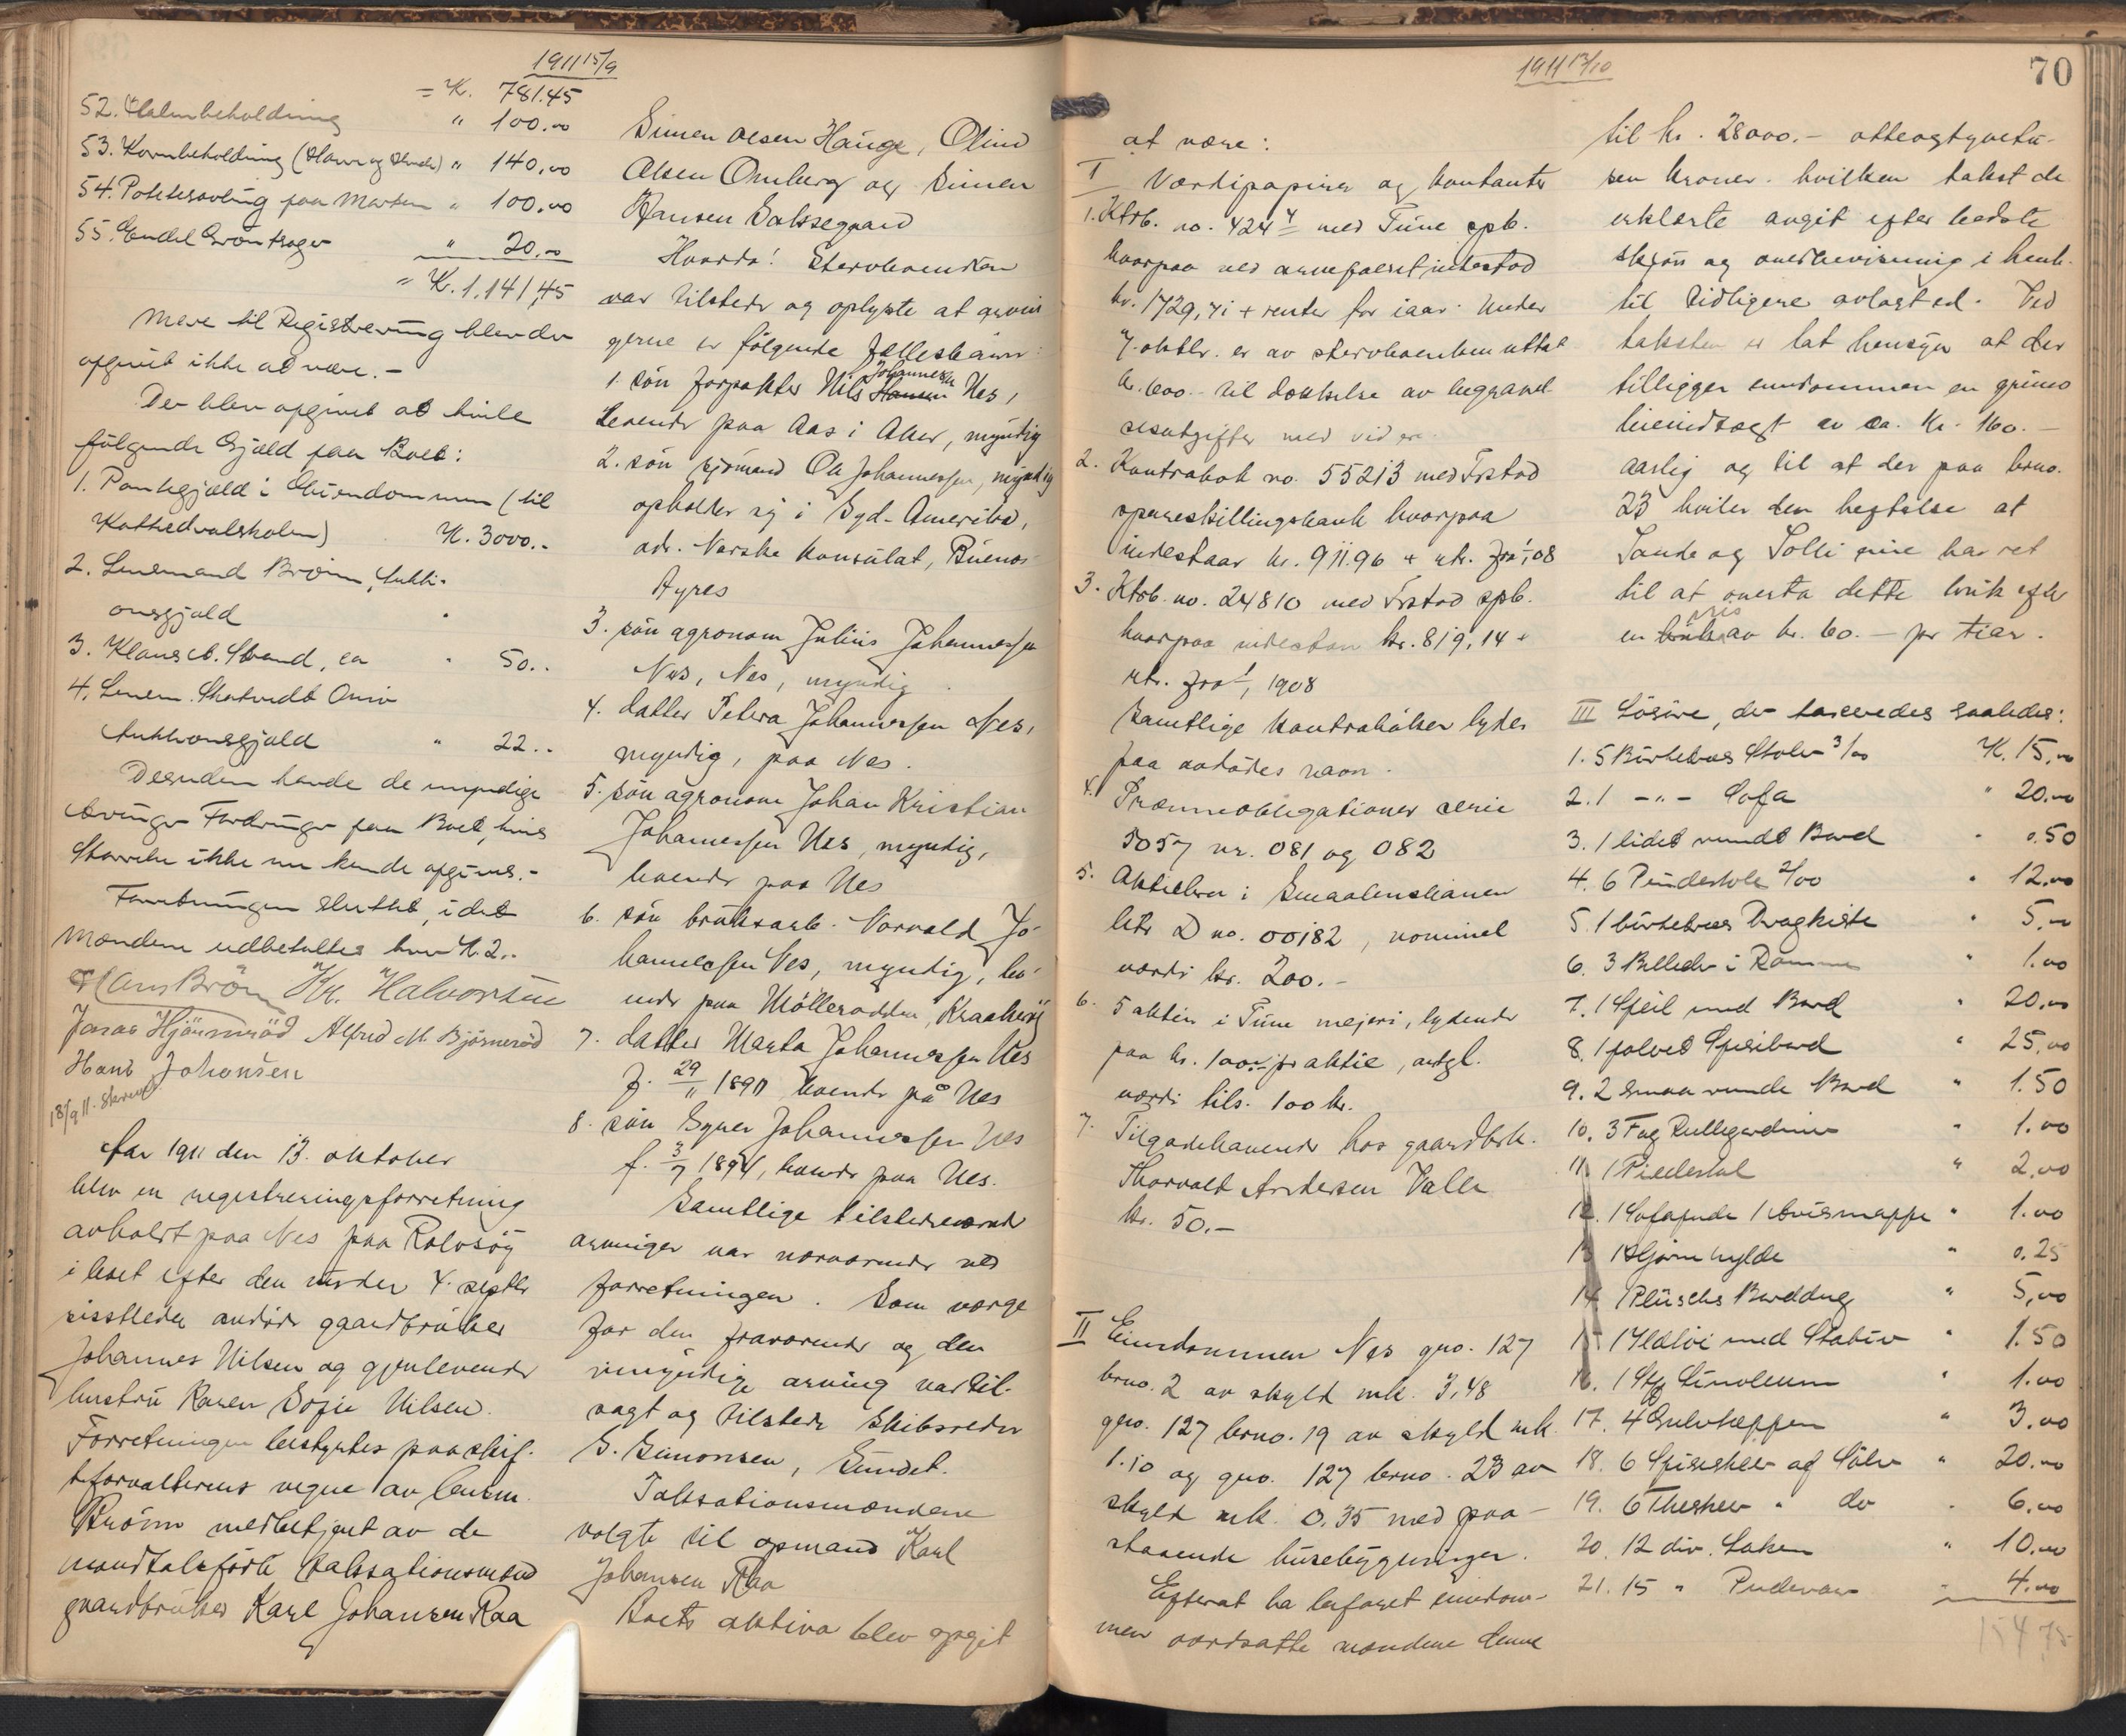 1911 15/9
= K. 781.45
52. Halmbeholdning " 100.00
53. Kornbeholdning (Havre og Hvede) " 140.00
54. Potetesavling paa Marken " 100.00
55. Endel Grøntsager " 20.00
= Kr. 1.141,45
Mere til Registrering blev der
opgivet ikke at være.-
Der blev opgivet at hvile
følgende Gjæld paa Boet:
1. Pantegjæld i Eiendommen (til
Kathedralskolen) K. 3000.-
2. Lensmand Bröim, Aukti-
onsgjæld "
3. Klaus Strand, ca " 50..
4. Lensm. Skatvedt Onsø
Auktionsgjæld " 22..
Desuden havde de myndige
Arvinger Fordringer paa Boet, hvis
Størrelse ikke nu kunde opgives.-
Forretningen sluttet, idet
Mændene udbetaltes hver K. 2..
Hans Bröim Kr. Halvorsen
Jonas Hjörnerød Alfred M. Bjørnerød
Hans Johansen
18/9 11.
Aar 1911 den 13. oktober
blev en registreringsforretning
avholdt paa Nes paa Rolvsöy
i boet efter den under 4. septbr
sisstleden avdöde gaardbruker
Johannes Nilsen og gjenlevende
hustru Karen Sofie Nilsen.
Forretningen bestyrtes paa skif-
teforvalterens vegne av lensm.
Bröim medbetjent av de
mandtalsförte taksationsmænd
gaardbruker Karl Johansen Raa
Simen Olsen Hauge, Olind
Olsen Omberg og Simen
Hansen Bakkegaard
Hvorda! Stervboenken
var tilstede og oplyste at arvin
gerne er følgende fællesbarn:
1. sön forpakter Nils Johannesen Nes,
boende paa Aas i Aker, myndig
2. sön sjömand Ole Johannessen, myndig
opholder sig i Syd-Amerika,
adr. Norske konsulat, Buenos-
Ayres
3. sön agronom Julius Johannessen
Nes, Nes, myndig.
4. datter Petera Johannessen Nes,
myndig, paa Nes.
5. sön agronom Johan Kristian
Johannessen Nes, myndig,
boende paa Nes
6. sön bruksarb. Norvald Jo-
hannessen Nes, myndig, bo-
ende paa Mölleradden, Kraakeröy
7. datter Marta Johannessen Nes
f. 29/11 1890, boende på Nes
8. sön Syver Johannessen Nes
f. 3/7 1894, boende paa Nes.
Samtlige tilstedeværende
arvinger var nærværende ved
forretningen. Som værge
for den fraværende og den
umyndige arving var til-
sagt og tilstede skibsreder
S. Simonsen, Sundet.
Taksationsmændene
valgte til opmand Karl
Johansen Raa
Boets aktiva blev opgit
1911 13/10
70
at være:
I Værdipapirer og kontanter
1. Ktrb. no. 4244 med Tune spb.
hvorpaa ved indestod
kr. 1729,71 + renter for iaar. Under
7. oktbr. er av stervboenken uttat
kr. 600.- til dækkelse av begravel-
sesutgifter med videre.
2. Kontrabok no. 55213 med Frstad
spareskillingsbank hvorpaa
indestaar kr. 911.96 + rtr. fra 1/1 08
3. Ktrb. no. 24810 med Frstad spb.
hvorpaa indestaar kr. 819,14 +
rtr. fra 1/1 1908
Samtlige kontraböker lyder
paa avdödes navn.
4. Præmieobligationer serie
5057 nr. 081 og 082
5. Aktiebrev i Smaalensbanen
litr D no. 00182, nominel
værdi kr. 200.-
6. 5 aktier i Tune mejeri, lydende
paa kr. 100.- pr aktie,
værdi tils. 100 kr.
7. Tilgodehavende hos gaardbrk.
Thorvald Andersen Valle
kr. 50.-
II Eiendommen Nes gno. 127
brno. 2 av skyld mk. 3,48
gno. 127 brno. 19 av skyld mk.
1.10 og gno. 127 brno. 23 av
skyld mk. 0.35 med paa-
staaende husebygninger.
Efterat ha befaret eiendom-
men værdsatte mændene denne
til kr. 28000.- otteogtyvetu-
sen kroner. hvilken takst de
erklærte avgit efter bedste
skjön og overbevisning i henh.
til tidligere avlagt ed. Ved
taksten er tat hensyn at der
tilligger eiendommen en
leieindtægt av ca. kr. 160.-
aarlig og til at der paa brno.
23 hviler den heftelse at
Sande og Solli eiere har ret
til at overta dette bruk efter
en pris av kr. 60.- pr tiar.
III Lösöre, der taxeredes saaledes:
1. 5 Birketræs Stole 3/00 K. 15,00
2. 1 -"- Sofa " 20.00
3. 1 lidet rundt Bord " 0.50
4. 6 Pindestole 2/00 " 12.00
5. 1 birketræs Dragkiste " 5.00
6. 3 Billeder i Ramme " 1.00
7. 1 Speil med Bord " 20.00
8. 1 polert Spisebord " 25.00
9. 2 smaa runde Bord " 1.50
10. 3 Fag Rullegardiner " 1.00
11. 1 Piedestal " 2.00
12. 1 Sofapude 1 Avismappe " 1.00
13. 1 Hjørnehylde " 0.25
14. 1 Plüschs Borddug " 5,00
15. 1 med Stativ " 1.50
16. 1 Stk Linoleum " 1.00
17. 4 Gulvtæpper " 3.00
18. 6 Spiseskeer af Sölv " 20.00
19. 6 Theskeer " do " 6.00
20. 12 div. Laken " 10.00
21. 15 " Pudevar " 4.00
154,75